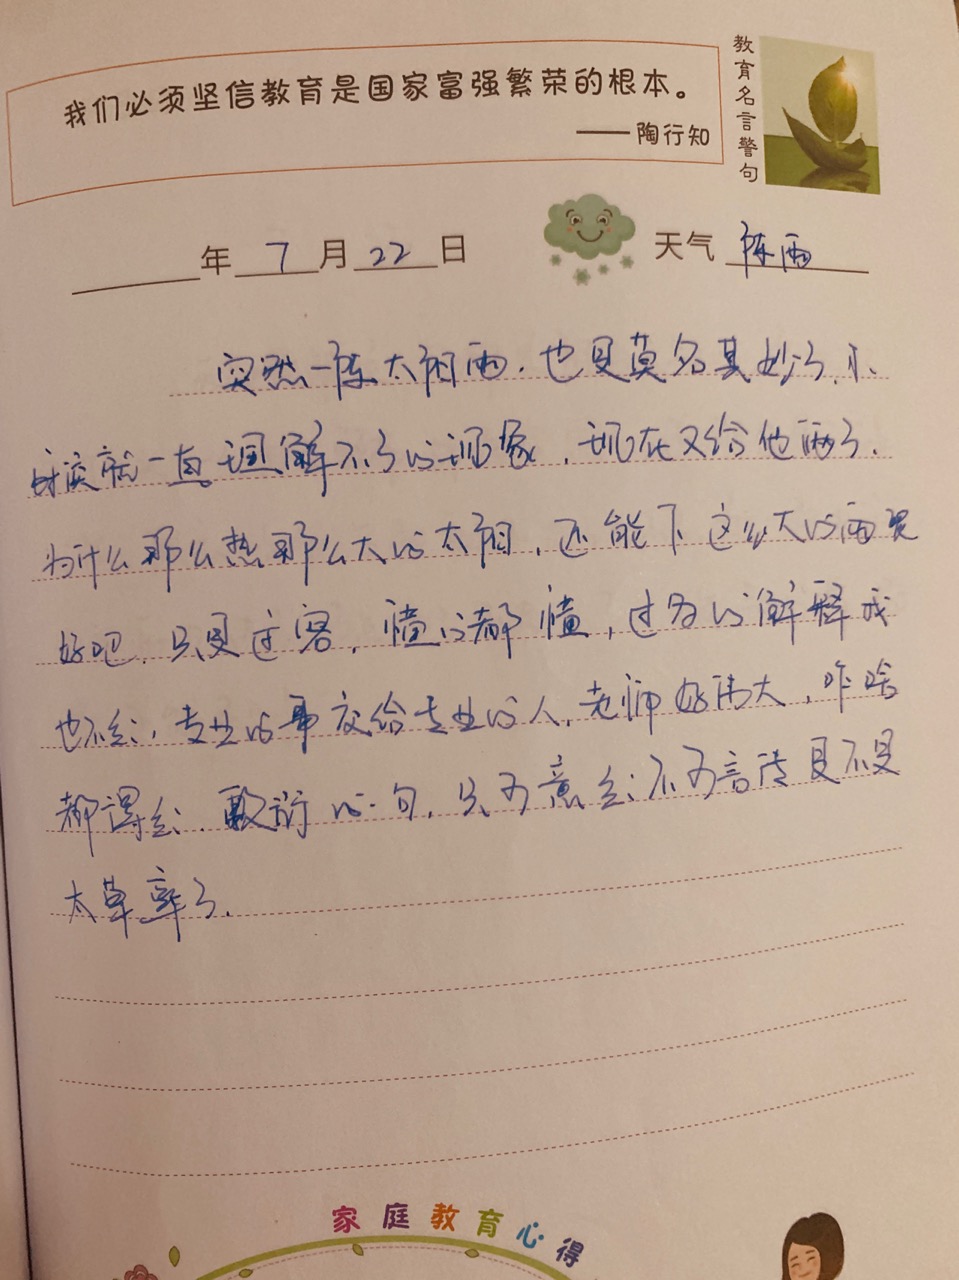 我们必须坚信教育是国家富强繁荣的根本。
——陶行知
教育名言警句
年 7 月 22 日 天气 阵雨
突然一阵太阳雨，也是莫名其妙了，小
时候就一直理解不了的现象，现在又给他雨了，
为什么那么热那么大的太阳，还能下这么大的雨呢
好吧，只是过客，懂的都懂，过多的解释我
也不会，专业的事交给专业的人，老师好伟大，咋啥
都得会，敷衍的一句，只可意会不可言传是不是
太草率了。
家庭教育心得